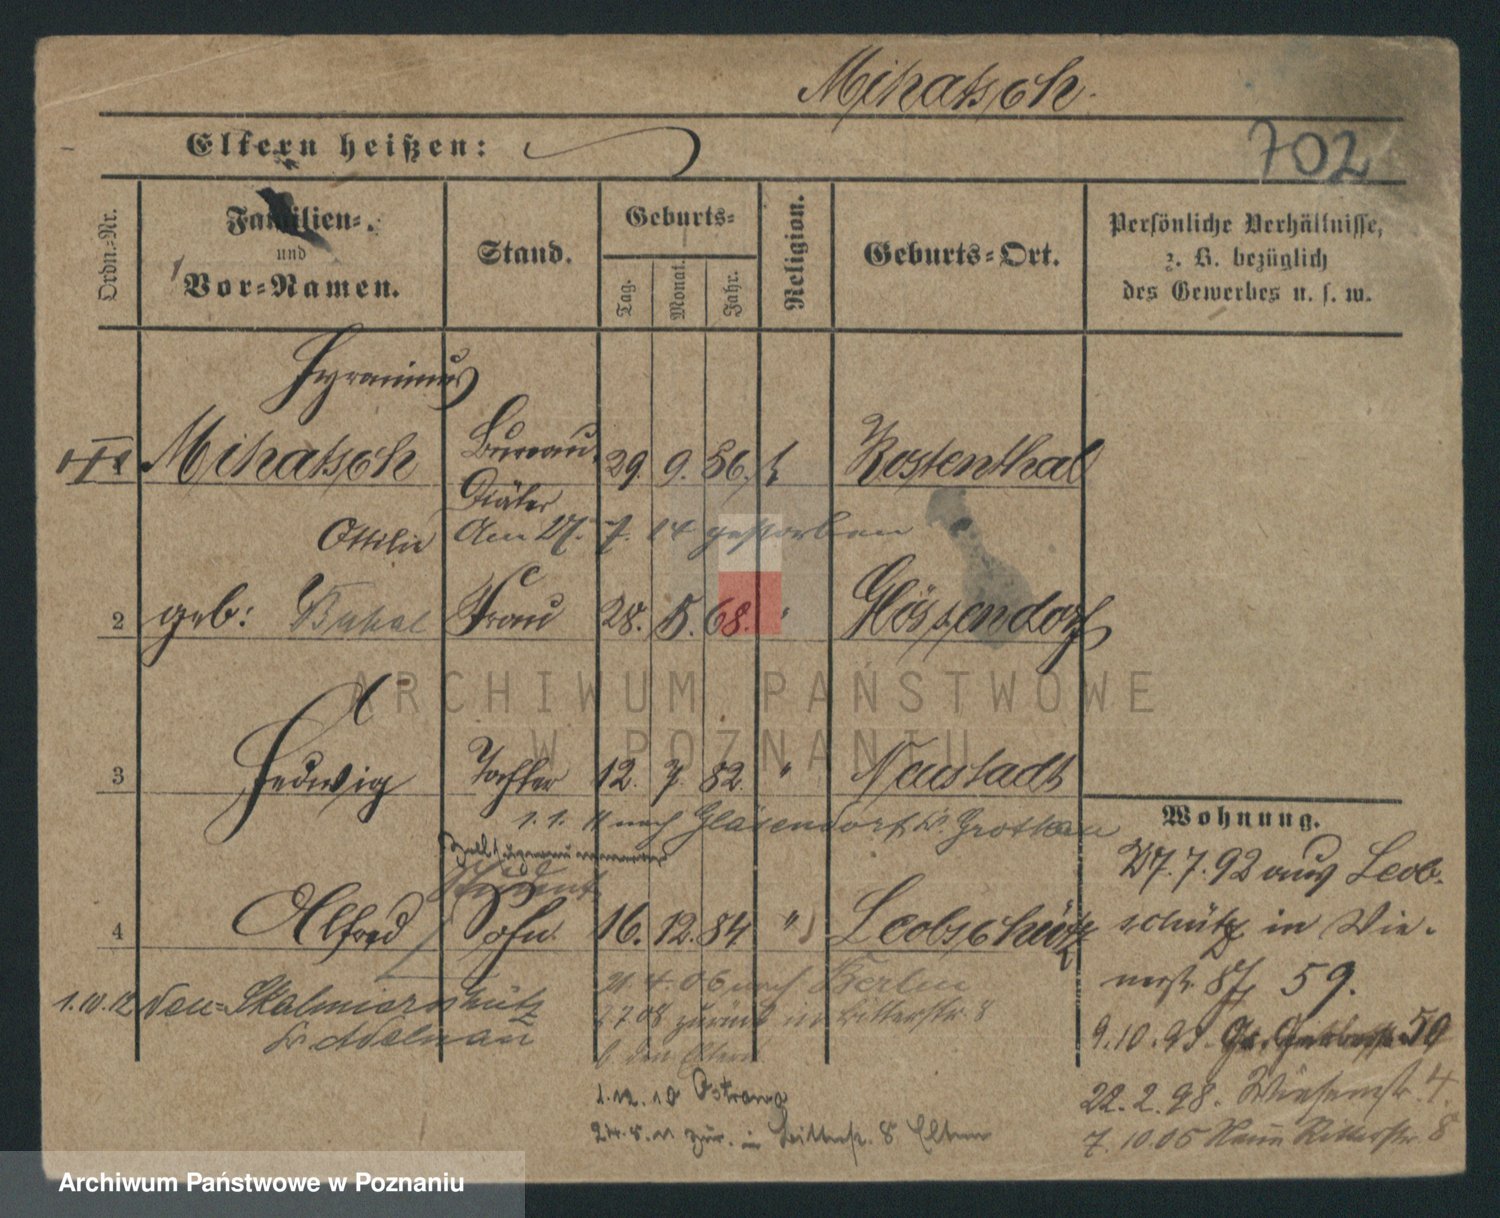 Mihatsch.
702
Eltern heißen:
Ordn.-Nr.
Familien- und Vor-Namen.
Stand.
Geburts-
Tag.
Monat.
Jahr.
Religion.
Geburts-Ort.
Persönliche Verhältnisse,
z. B. bezüglich
des Gewerbes u. s. w.
Hyronimus
1 Mihatsch Bureau 29. 9. 56. k Rostenthal
Diätar
Ottilie Am 27. 7. 14 gestorben
2 geb: Frau 28. 5. 68. " Glössendorf
3 Hedwig Tochter 12. 7. 82. " Neustadt
1. 1. 11 nach Gläsendorf Kr. Grottkau
Student
4 Alfred Sohn 16. 12. 84 " Leobschütz
21. 4. 06 nach Berlin
1.10.12 Neu-Skalmierschütz
Kr Adelnau
zurück in Ritterstr. 8
b. den Eltern
1.12.10 Ostrowo
zur. in Ritterstr. 8 Eltern
Wohnung.
27. 7. 92 aus Leob-
schütz in Wie-
nerstr. 59.
9.10.93. 59
22. 2. 98. Wiesenstr. 4.
7. 10. 05 Neue Ritterstr. 8
ARCHIWUM PAŃSTWOWE
W POZNANIU
Archiwum Państwowe w Poznaniu